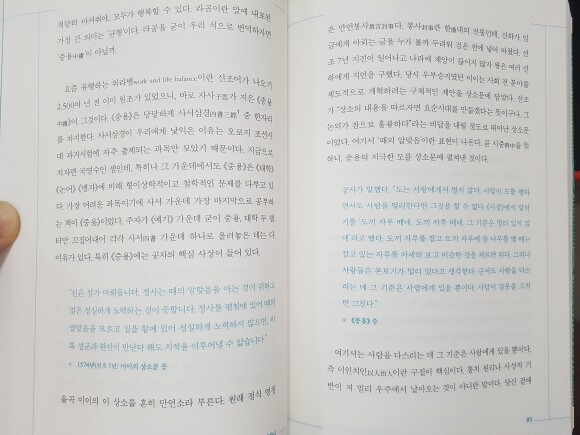 적당히 마셔줘야, 모두가 행복할 수 있다. 라곰이란 말에 내포된
가장 큰 의미는 '균형'이다. 라곰을 굳이 우리 식으로 번역하자면
'중용中庸'이 아닐까.
요즘 유행하는 워라밸work and life balance이란 신조어가 나오기
2,500여 년 전 이미 원조가 있었으니, 바로 자사子思가 지은 《중용
中庸》이 그것이다. 《중용》은 당당하게 사서삼경四書三經 중 한자리
를 차지한다. 사서삼경이 우리에게 낯익은 이유는 오로지 조선시
대 과거시험에 자주 출제되는 과목이었기 때문이다. 지금으로
쳐자면 국영수인 셈인데, 특히나 그 가운데에서도 《중용》은 《대학》
《논어》 《맹자》에 비해 형이상학적이고 철학적인 문제를 다루고 있
다. 가장 어려운 과목이기에 사서 가운데 가장 마지막으로 공부하
는 책이 《중용》이었다. 주자가 《예기》 가운데 굳이 중용, 대학 두 챕
터만 끄집어내어 각각 사서四書 가운데 하나로 올려놓은 데는 다
이유가 있다. 특히 《중용》에는 공자의 핵심 사상이 들어 있다.
"신은 삼가 아뢰옵니다. 정사는 때의 알맞음을 아는 것이 귀하고
일은 성실하게 노력하는 것이 중합니다. 정사를 펼침에 있어 때의
알맞음을 모르고 일을 함에 있어 성실하게 노력하지 않으면, 비
록 성군과 현신이 만난다 해도 치적을 이루어낼 수 없습니다."
1574년(선조 7년) 이이의 상소문 중
율곡 이이의 이 상소를 흔히 만언소라 부른다. 원래 정식 명칭
은 만언봉사萬言封事다. 봉사封事란 한漢대의 전통인데, 신하가 임
금에게 아뢰는 글을 누가 볼까 두려워 검은 천에 넣어 바쳤다. 선
조 7년 지진이 일어나고 나라에 재앙이 끊이지 않자 왕은 여러 신
하에게 직언을 구했다. 당시 우부승지였던 이이는 사회 전 분야를
제도적으로 개혁하려는 구체적인 제안을 상소문에 담았다. 선조
가 "상소의 내용을 따르자면 요순시대를 만들겠다는 뜻이구나. 그
논의가 참으로 훌륭하다"라는 비답을 내릴 정도로 뛰어난 상소문
이었다. 여기서 '때의 알맞음'이란 표현이 나온다. 곧 시중時中을 뜻
하니, 중용의 지극한 도를 상소문에 펼쳐낸 것이다.
공자가 말했다. "도는 사람에게서 멀지 않다. 사람이 도를 행하
면서도 사람을 멀리한다면 그것을 할 수 없다. 《시경》에서 말하
기를 '도끼 자루 베네. 도끼 자루 베네. 그 기준은 멀리 있지 않
네'라고 했다. 도끼 자루를 잡고 도끼 자루에 쓸 나무를 벨 때는
잡고 있는 자루를 자세히 보고 비슷한 것을 찍으면 된다. 그러나
사람들은 본보기가 멀리 있다고 생각한다. 군자도 사람을 다스
리는 데 그 기준은 사람에게 있을 뿐이다. 사람이 잘못을 고치
면 그친다."
《중용》 중
여기서는 사람을 다스리는 데 그 기준은 사람에게 있을 뿐이다,
즉 이인치인以人治人이란 구절이 핵심이다. 통치 원리나 사상적 기
반이 저 멀리 우주에서 날아오는 것이 아니란 말이다. 당신 곁에
85